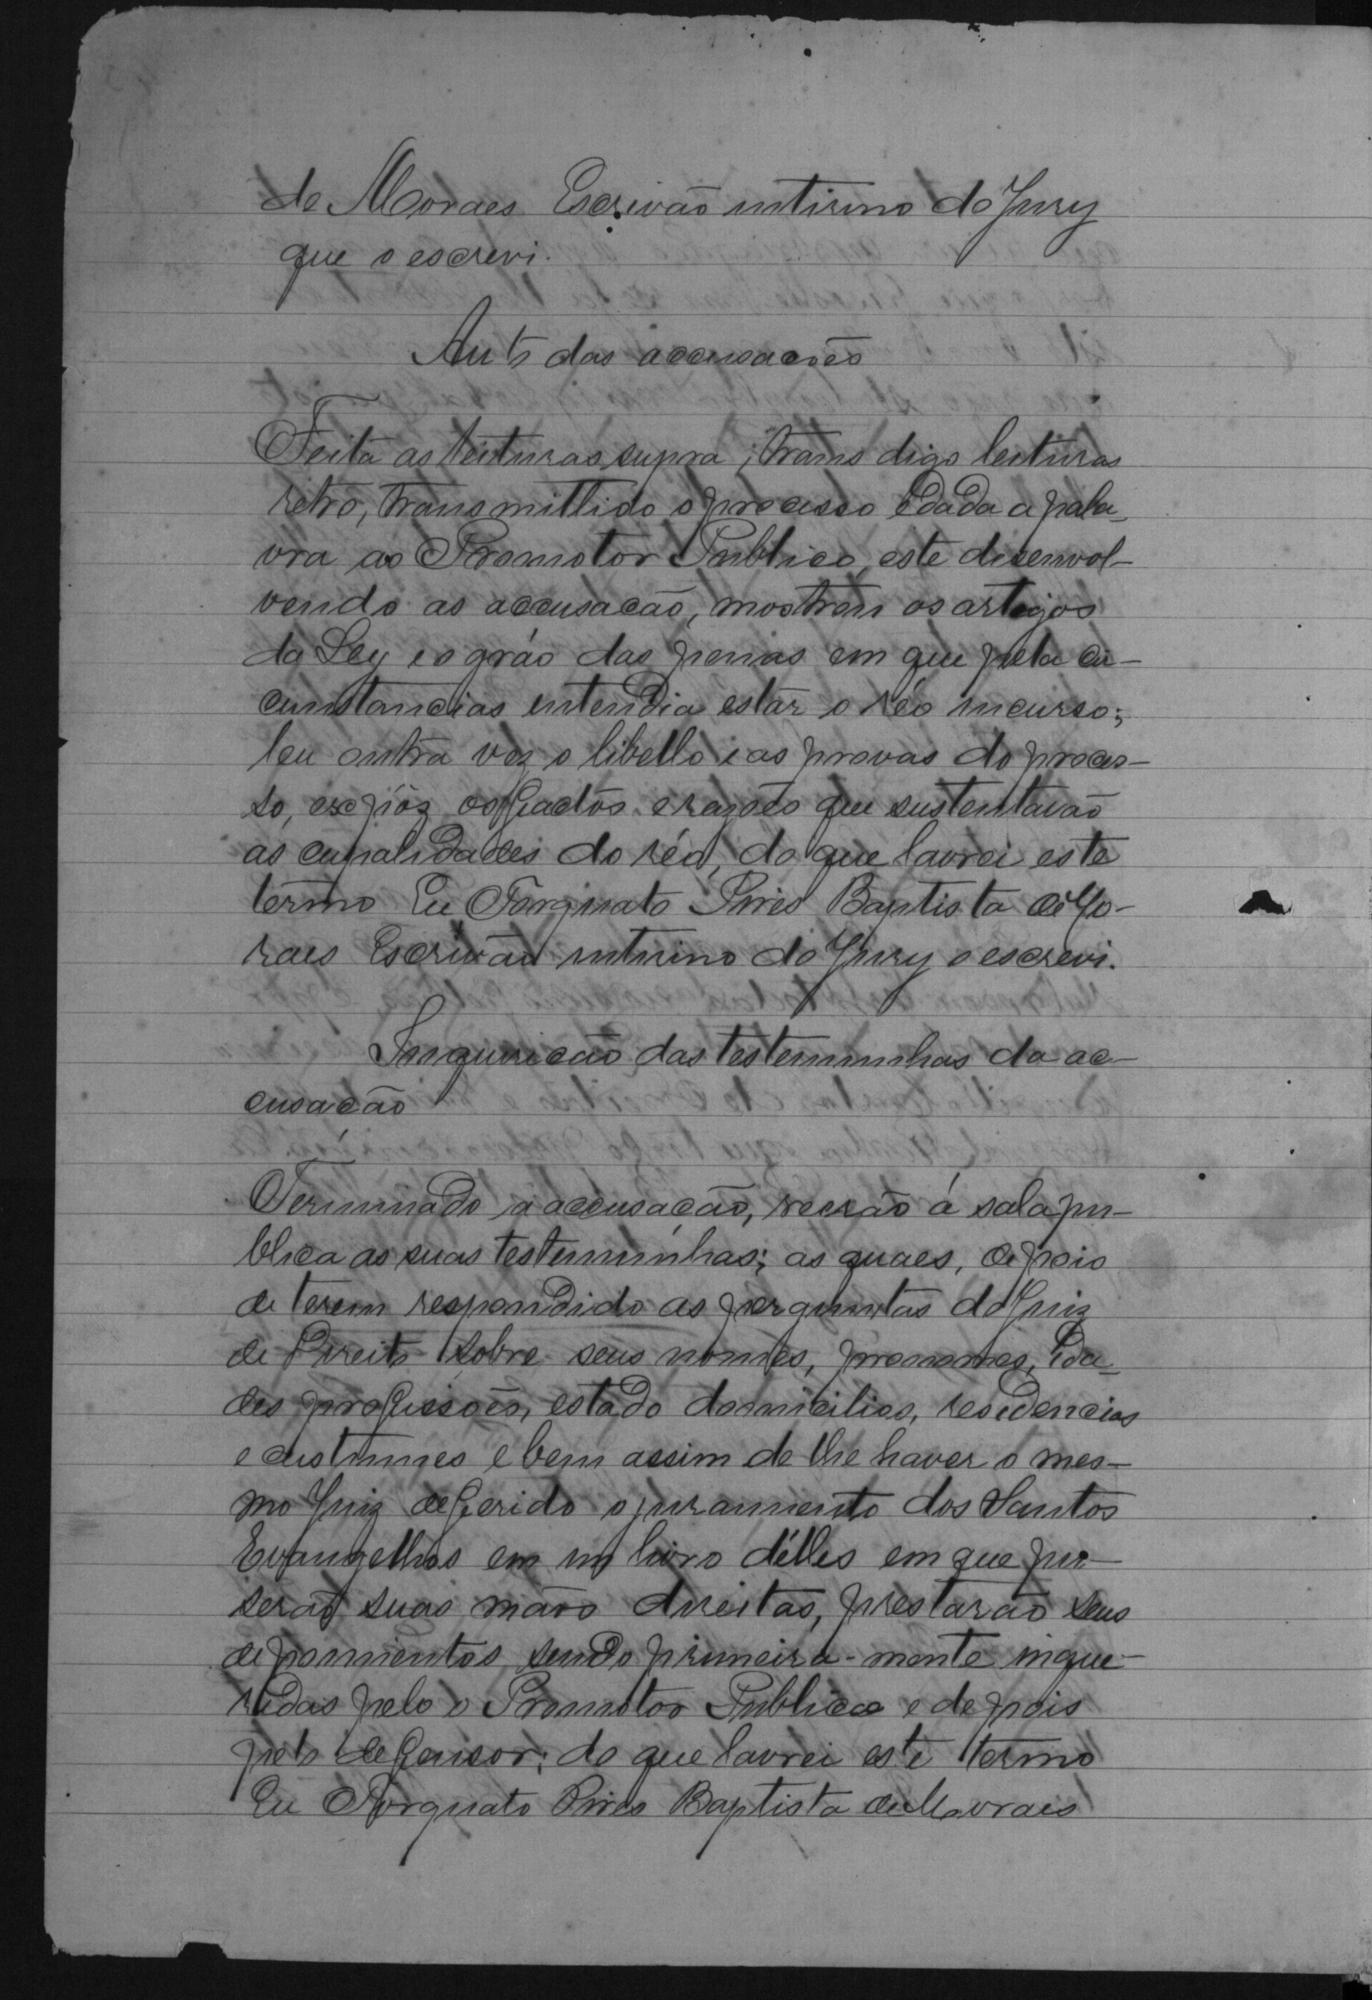 de Moraes Escrivão interino do Jury
que o escrevi.
Auto das accusacões
Feita as leituras supra, trans digo leituras
retro, transmittido o processo e dada a pala-
vra ao Promotor Publico, este disenvol-
vendo as accusacão, mostrou os artigos
da Ley e o gráo das penas em que pela cir-
cunstancias entendia estar o réo incurso;
leu outra vez o libello e as provas do proces-
so, expôz os factos e rasões que sustentavão
as culpalidades do réo, do que lavrei este
termo Eu Torquato Pires Baptista de Mo-
raes Escrivão interino do Jury o escrevi.
Inquiricão das testemunhas da ac-
cusacão
Terminado a accusacão, vierão á sala pu-
blica as suas testemunhas; as quaes, depois
de terem respondido as perguntas do Juiz
de Direito sobre seus nomes, pronomes, ida-
des profissões, estado domicilios, residencias
e custumes e bem assim de lhe haver o mes-
mo Juiz deferido o juramento dos Santos
Evangelhos em um livro délles em que pu-
serão suas mãos direitas, prestarão seus
depoimentos sendo primeira-mente inque-
ridas pelo o Promotor Publico e depois
pelo defensor; do que lavrei este termo
Eu Torquato Pires Baptista de Moraes